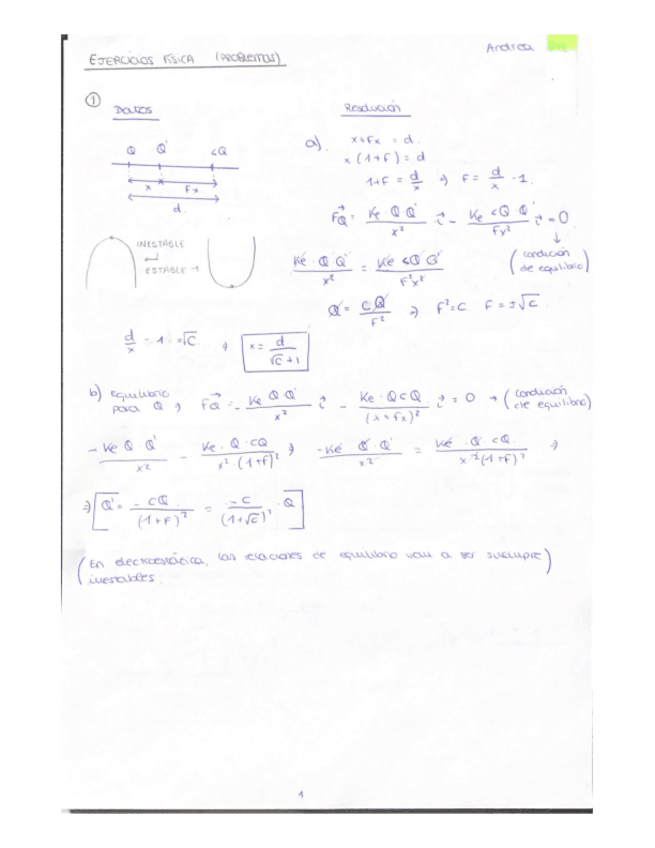 Andrea
EJERCICIOS FÍSICA (PROBLEMAS)
① Datos
Q Q' cQ
x Fx
d
INESTABLE
ESTABLE →
Resolución
a). x+Fx = d.
x (1+F) = d
1+F = d/x ⇒ F = d/x - 1.
F⃗Q' = Ke · Q Q'/x² i⃗ - Ke cQ · Q'/Fx² i⃗ = 0
↓
(condición de equilibrio)
Ke · Q Q'/x² = Ke cQ Q'/F²x²
Q = cQ/F² ⇒ F² = C F = ±√C.
d/x - 1 = √C ⇒ x = d/(√C + 1)
b) equilibrio
para Q ⇒ F⃗Q = - Ke Q Q'/x² i⃗ - Ke · Q cQ/(x + Fx)² i⃗ = 0 → (condición de equilibrio)
- Ke Q Q'/x² - Ke · Q · cQ/x² · (1+F)² ⇒ - Ke · Q · Q'/x² = Ke · Q · cQ/x²(1+F)² ⇒
⇒ Q' = - cQ/(1+F)² = - C/(1+√C)² · Q
(En electroestática, las relaciones de equilibrio van a ser siempre)
inestables.
1